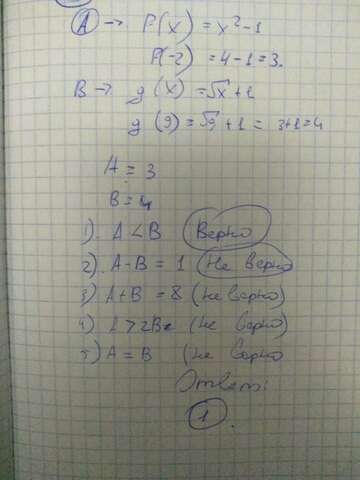 A → P(x) = x² - 1
P(-2) = 4 - 1 = 3.
B → g(x) = √x + 1
g(9) = √9 + 1 = 3+1=4
A = 3
B = 4
1). A < B (Верно)
2). A - B = 1 (Не верно)
3) A + B = 8 (не верно)
4) A > 2B (не верно)
5) A = B (не верно
Ответ:
1.